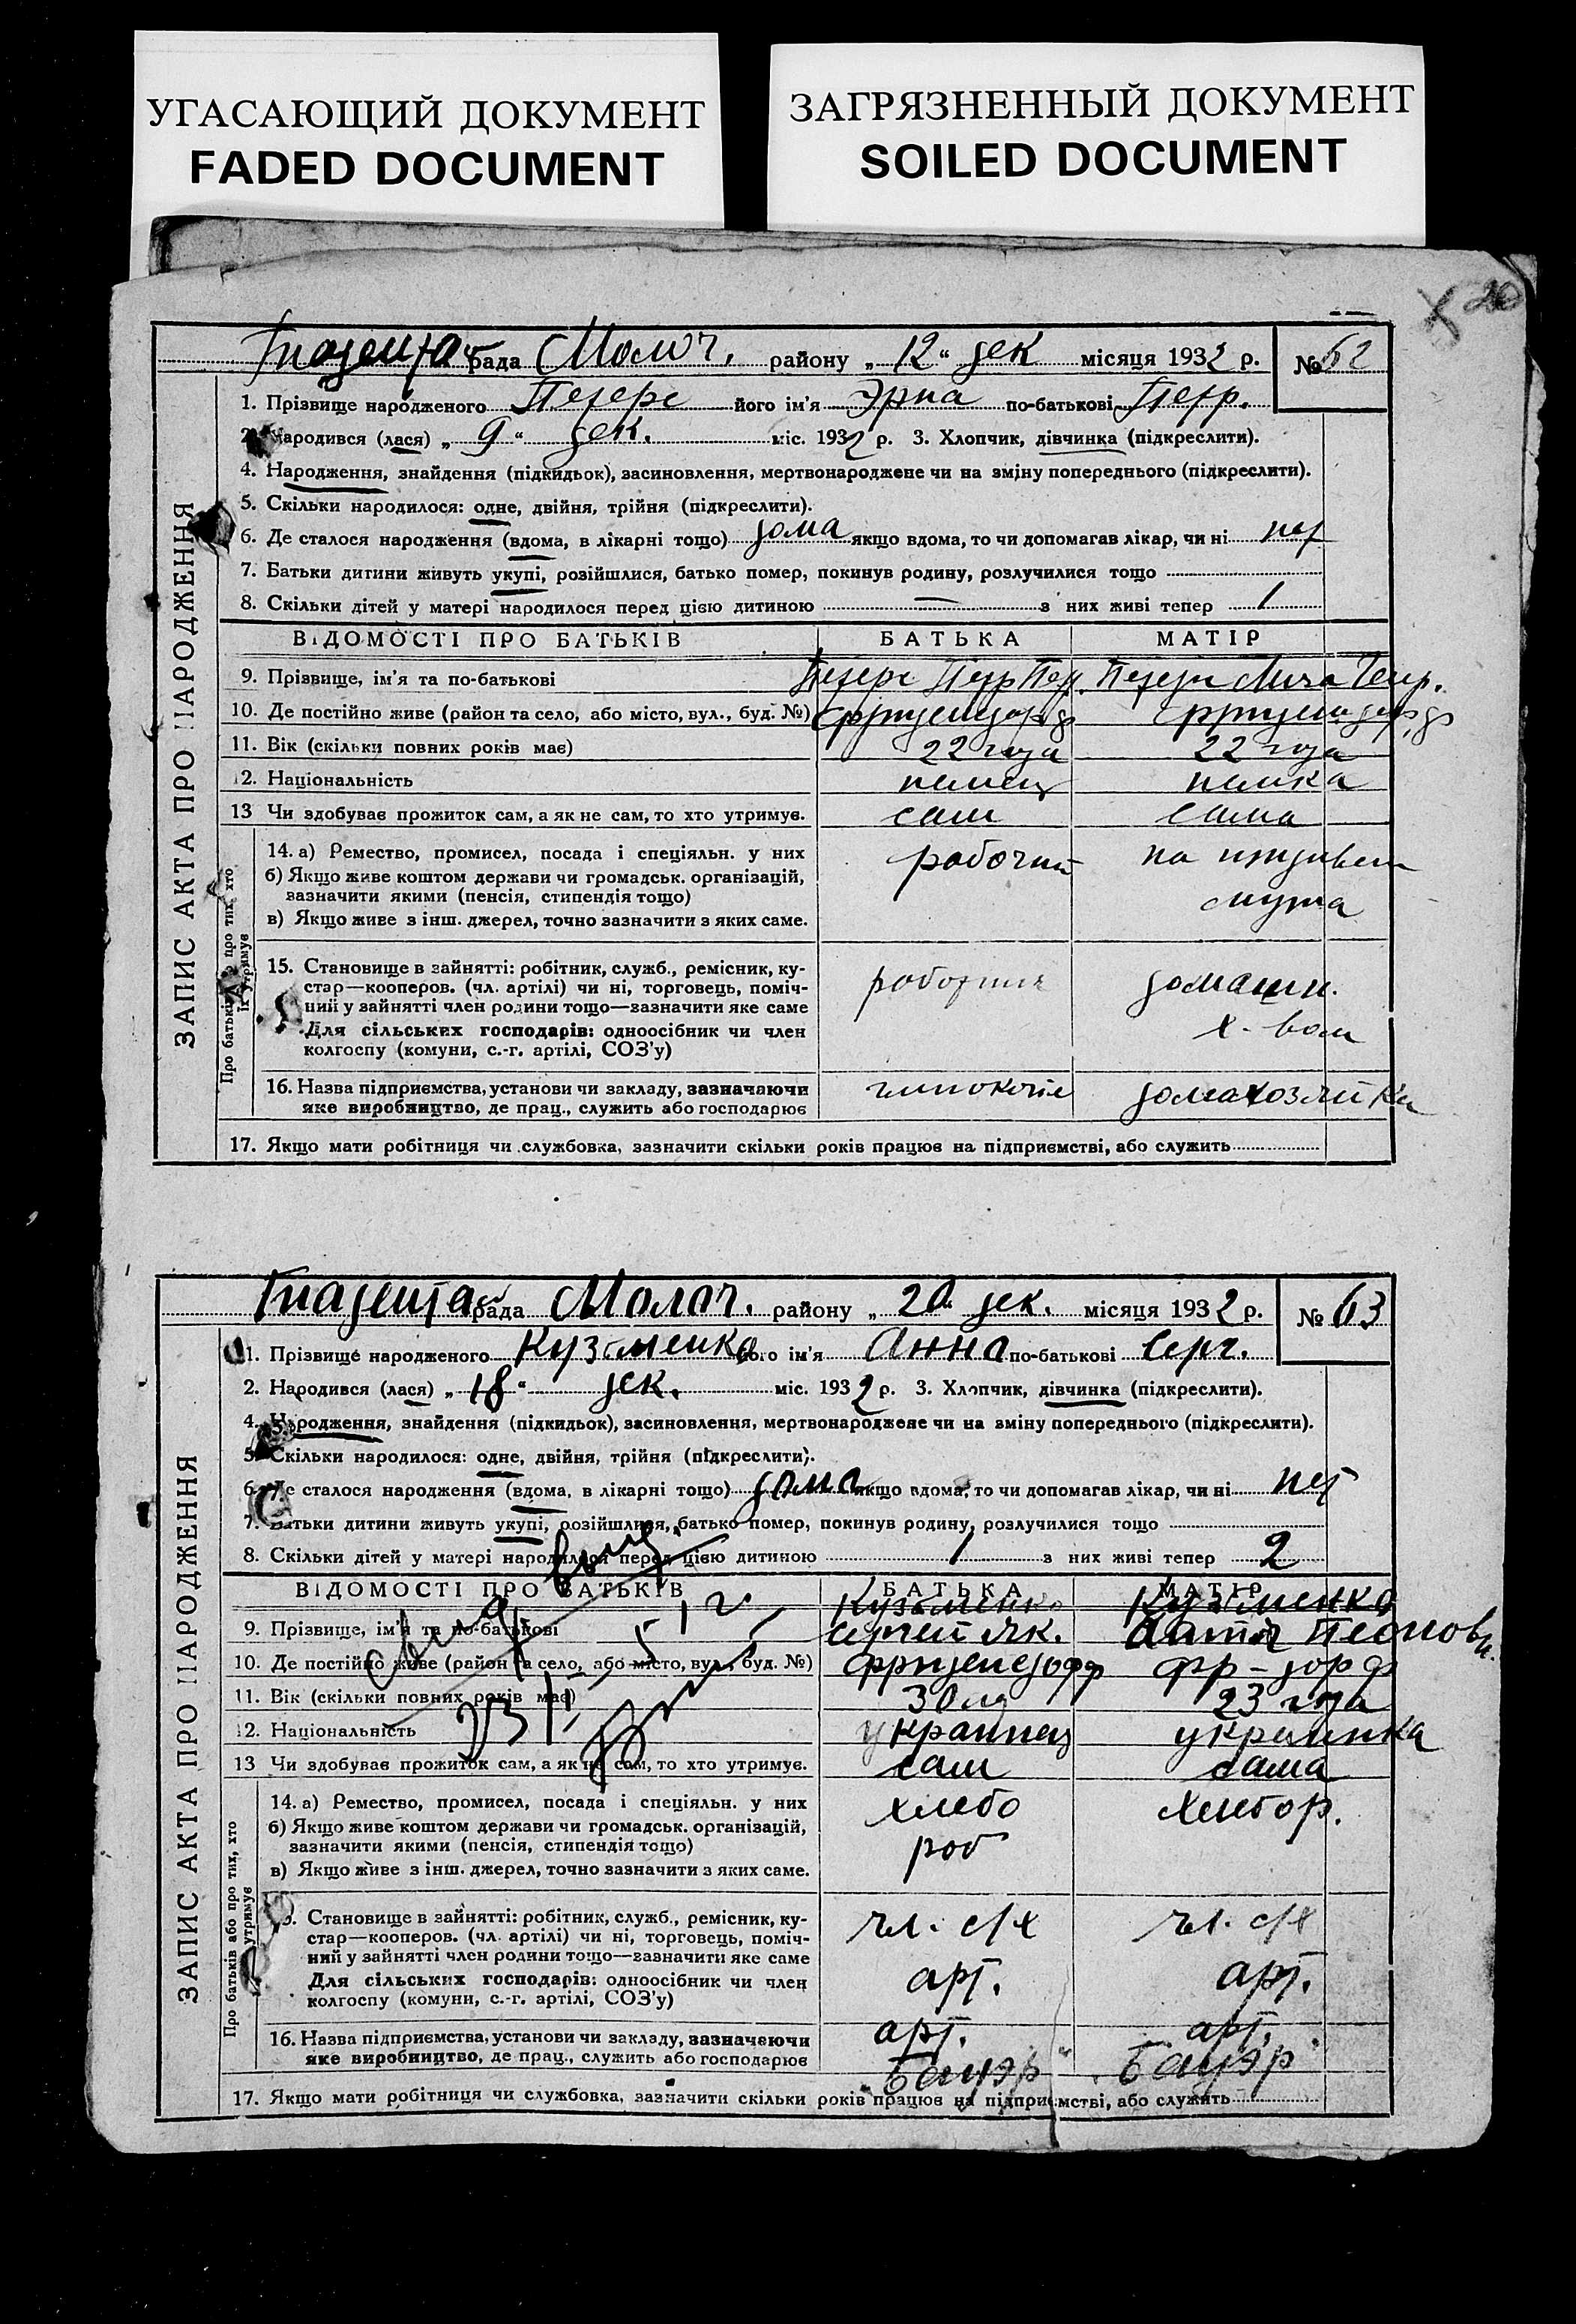 УГАСАЮЩИЙ ДОКУМЕНТ
FADED DOCUMENT
ЗАГРЯЗНЕННЫЙ ДОКУМЕНТ
SOILED DOCUMENT
20
ЗАПИС АКТА ПРО НАРОДЖЕННЯ
рада Молоч. району „ 12 “ дек місяця 1932 р. № 62
1. Прізвище народженого Петерс його ім'я Эрна по-батькові Петр.
2. Народився (лася) „ 9 “ дек. міс. 1932 р. 3. Хлопчик, дівчинка (підкреслити).
4. Народження, знайдення (підкидьок), засиновлення, мертвонароджене чи на зміну попереднього (підкреслити).
5. Скільки народилося: одне, двійня, трійня (підкреслити).
6. Де сталося народження (вдома, в лікарні тощо) дома якщо вдома, то чи допомагав лікар, чи ні нет
7. Батьки дитини живуть укупі, розійшлися, батько помер, покинув родину, розлучилися тощо
8. Скільки дітей у матері народилося перед цією дитиною — з них живі тепер 1
ВІДОМОСТІ ПРО БАТЬКІВ БАТЬКА МАТІР
9. Прізвище, ім'я та по-батькові Петерс Петр Пет. Петерс
10. Де постійно живе (район та село, або місто, вул., буд. №)
11. Вік (скільки повних років має) 22 года 22 года
12. Національність немец немка
13 Чи здобуває прожиток сам, а як не сам, то хто утримує. сам сама
Про батьків або про тих, хто їх утримує
14. а) Ремество, промисел, посада і спеціяльн. у них рабочий на иждивен
б) Якщо живе коштом держави чи громадськ. організацій, мужа
зазначити якими (пенсія, стипендія тощо)
в) Якщо живе з інш. джерел, точно зазначити з яких саме.
15. Становище в зайнятті: робітник, служб., ремісник, ку- домашн.
стар—кооперов. (чл. артілі) чи ні, торговець, поміч- х-вом
ний у зайнятті член родини тощо—зазначити яке саме
Для сільських господарів: одноосібник чи член
колгоспу (комуни, с.-г. артілі, СОЗ'у)
16. Назва підприємства, установи чи закладу, зазначаючи домахозяйка
яке виробництво, де прац., служить або господарює
17. Якщо мати робітниця чи службовка, зазначити скільки років працює на підприємстві, або служить
ЗАПИС АКТА ПРО НАРОДЖЕННЯ
рада Молоч. району „ 20 “ дек. місяця 1932 р. № 63
1. Прізвище народженого Кузьменко його ім'я Анна по-батькові Серг.
2. Народився (лася) „ 18 “ дек. міс. 1932 р. 3. Хлопчик, дівчинка (підкреслити).
4. Народження, знайдення (підкидьок), засиновлення, мертвонароджене чи на зміну попереднього (підкреслити).
5. Скільки народилося: одне, двійня, трійня (підкреслити).
6. Де сталося народження (вдома, в лікарні тощо) дома якщо вдома, то чи допомагав лікар, чи ні нет
7. Батьки дитини живуть укупі, розійшлися, батько помер, покинув родину, розлучилися тощо
8. Скільки дітей у матері народилося перед цією дитиною 1 з них живі тепер 2
ВІДОМОСТІ ПРО БАТЬКІВ БАТЬКА МАТІР
Кузьменко Кузьменко
9. Прізвище, ім'я та по-батькові Сергей Як.
10. Де постійно живе (район та село, або місто, вул., буд. №)
11. Вік (скільки повних років має) 30 23 года
12. Національність украинец украинка
13 Чи здобуває прожиток сам, а як не сам, то хто утримує. сам сама
Про батьків або про тих, хто їх утримує
14. а) Ремество, промисел, посада і спеціяльн. у них хлебо хлебор.
б) Якщо живе коштом держави чи громадськ. організацій, роб
зазначити якими (пенсія, стипендія тощо)
в) Якщо живе з інш. джерел, точно зазначити з яких саме.
15. Становище в зайнятті: робітник, служб., ремісник, ку- чл. с/х чл. с/х
стар—кооперов. (чл. артілі) чи ні, торговець, поміч-
ний у зайнятті член родини тощо—зазначити яке саме
Для сільських господарів: одноосібник чи член арт. арт.
колгоспу (комуни, с.-г. артілі, СОЗ'у)
16. Назва підприємства, установи чи закладу, зазначаючи арт. арт.
яке виробництво, де прац., служить або господарює „Бауэр“ „Бауэр“
17. Якщо мати робітниця чи службовка, зазначити скільки років працює на підприємстві, або служить